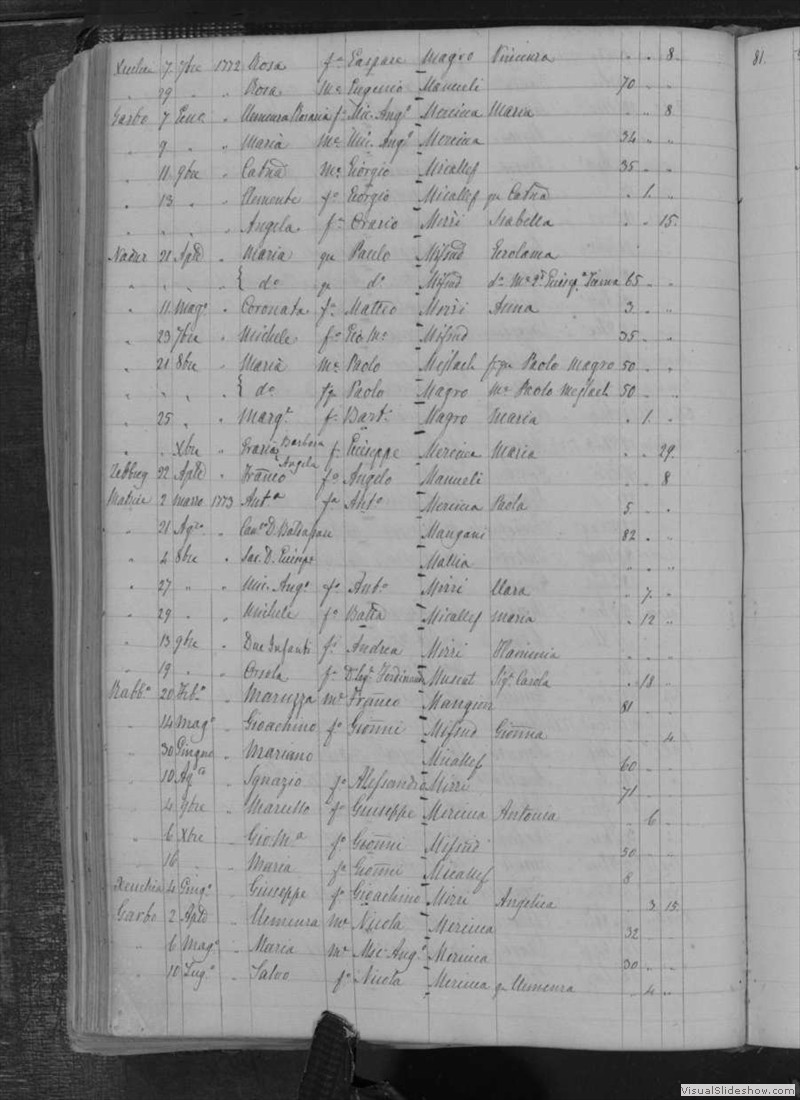 81.
Xeuchia 7. 7bre 1772 Rosa fa Gaspare Magro Vincenza " " 8.
" 29 " " Rosa Me Eugenio Manueli 70 " "
Garbo 7 Genr. " Clemenza Rosaria fa Mic. Ango Mercieca Maria " " 8
" 9 " " Maria Me Mic. Ango Mercieca 34 " "
" 11 9bre " Catna Me Giorgio Micallef 35 " "
" 13 " " Clemente fo Giorgio Micallef qu Catna " 1. "
" " " " Angela fa Orazio Mizzi Isabella " " 15.
Nadur 21 Aple " Maria qu Paulo Mifsud Gerolama
" " " " { do qu do Mifsud 65 " "
" 11 Mago " Coronata fa Matteo Mizzi Anna 3 " "
" 23 7bre " Michele fo Gio Ma Mifsud 35 " "
" 21 8bre " Maria Me Paolo Mejlach Paolo Magro 50 " "
" " " " { do Paolo Magro Me Paolo Mejlach 50 " "
" 25 " " Margta fa Bart. Magro Maria " 1. "
" " Xbre " Grazia Barbera Angela fa Giuseppe Mercieca Maria " " 29.
Zebbug 22 Aple " Franco fo Angelo Manueli " " 8
Matrice 2 marzo 1773 Anta fa Anto Mercieca Paola 5 " "
" 21 Agto " Cano D. Baldassare Mangani 82 " "
" 4 8bre " Sac. D. Giuseppe Mallia " " "
" 27 " " Mic. Ango fo Anto Mizzi Clara " 7. "
" 29 " " Michele fo Batta Micallef Maria " 12 "
" 13 9bre " Due Infanti fi Andrea Mizzi Flaminia " " "
" 19 " " Orsola fa Ferdinando Muscat Siga Carola " 18 "
Rabbo 20 Febo " Maruzza Me Franco Mangion 81 " "
" 14 Mago " Gioachino fo Gionni Mifsud Gionna " " 4.
" 30 Giugno " Mariano Micallef 60 " "
" 10 Agto " Ignazio fo Alessandro Mizzi 71 " "
" 4 9bre " Marcello fo Giuseppe Mercieca Antonia " 6 "
" 6 Xbre " Gio: Ma fo Gionni Mifsud 50 " "
" 16 " " Maria fa Gionni Micallef 8 " "
Xeuchia 4 Giugo " Giuseppe fo Gioachino Mizzi Angelica " 3 15.
Garbo 2 Aple " Clemenza Me Nicola Mercieca 32 " "
" 6 Mago " Maria Me Mic-Ango Mercieca 30 " "
" 10 Lugo " Salvo fo Nicola Mercieca qu Clemenza " 4 "
VisualSlideshow.com